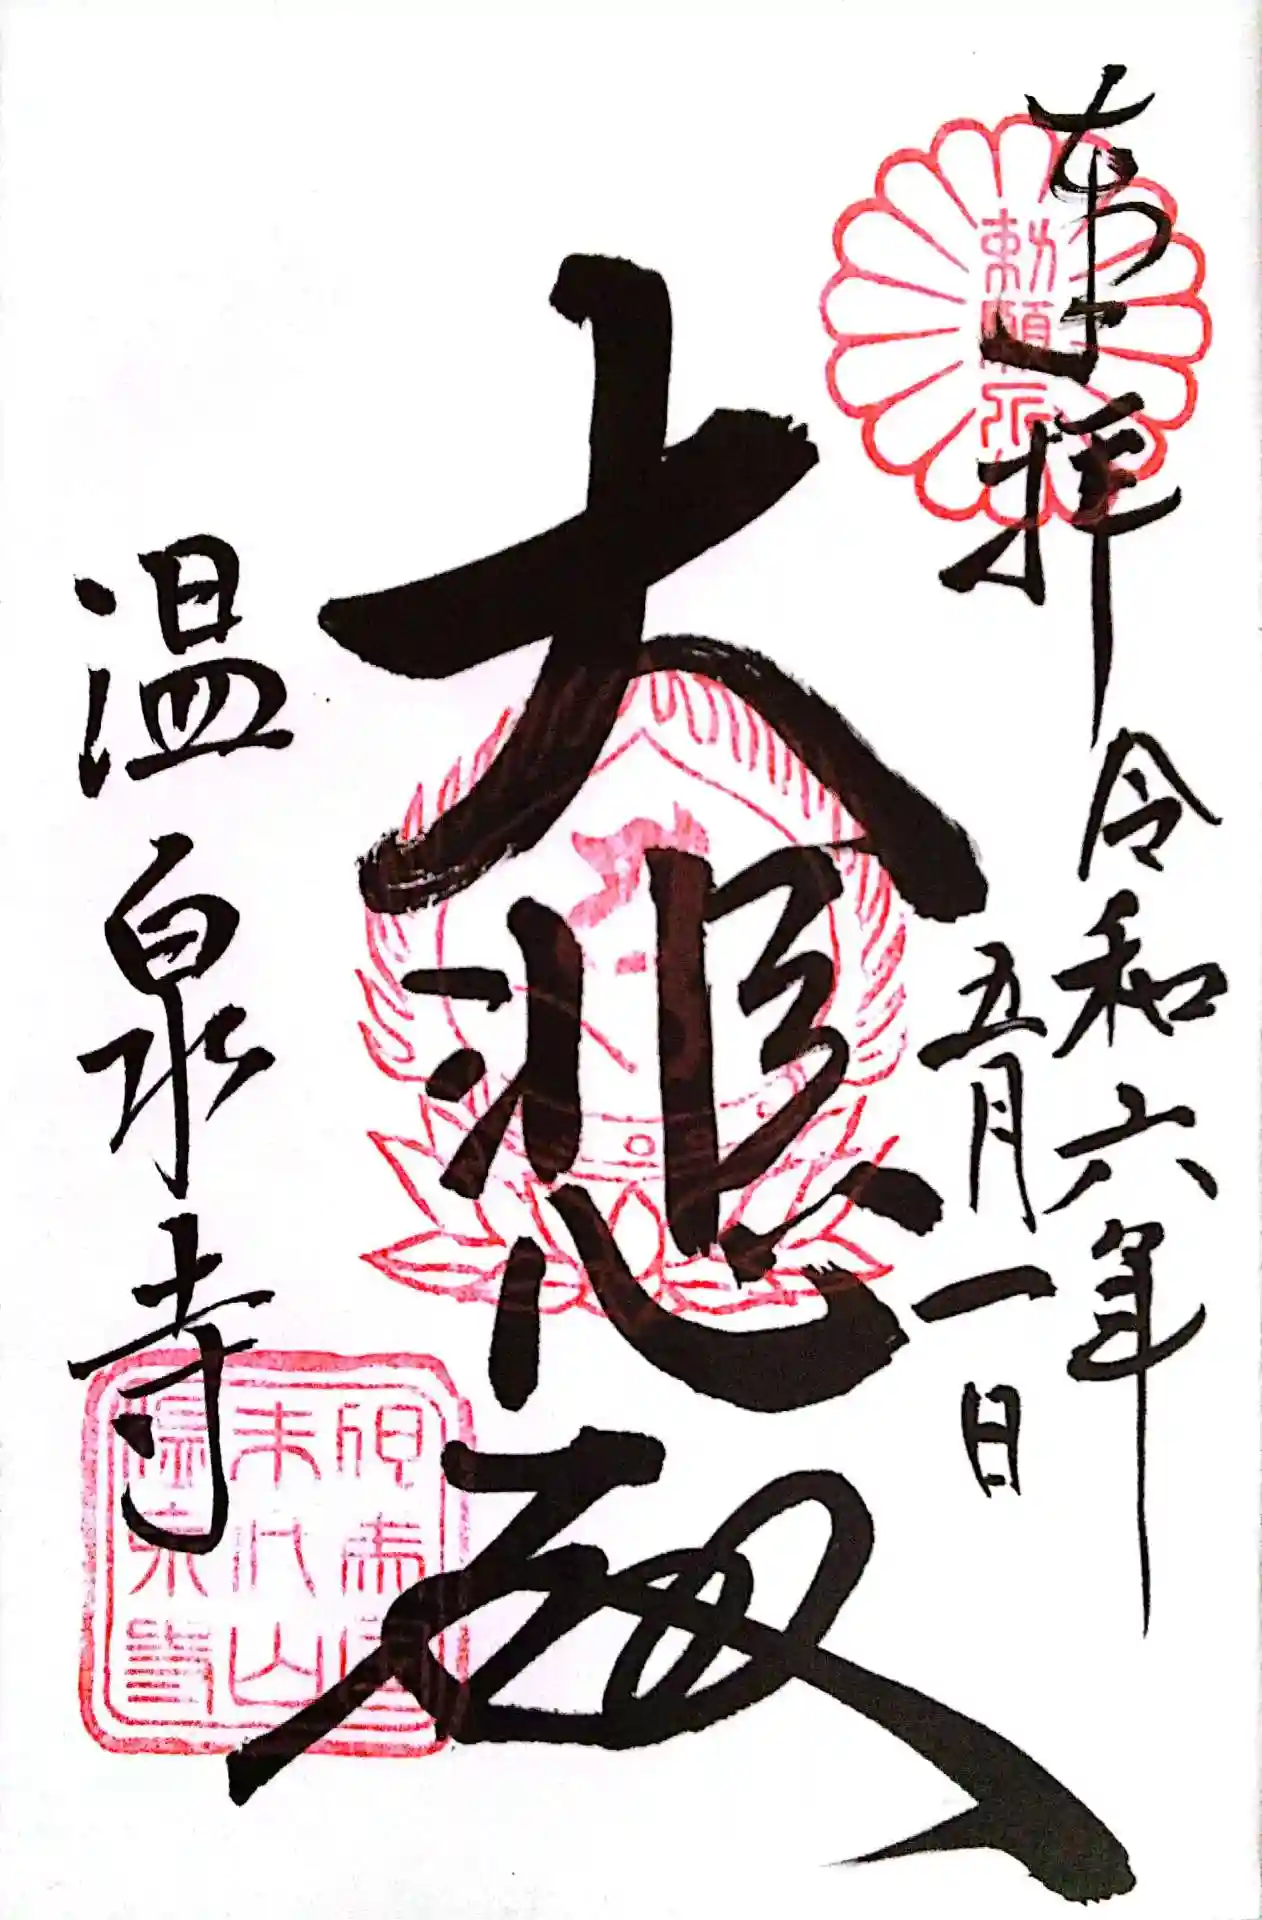 奉拝
令和六年
五月一日
勅願所
大悲殿
温泉寺
末代山
温泉寺